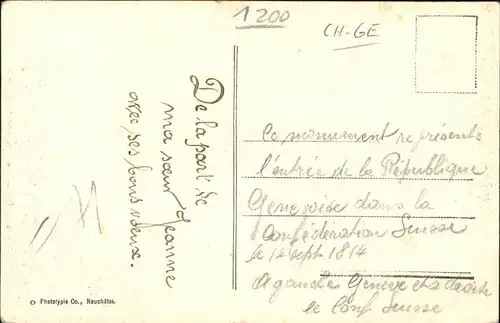 1200
CH-GE
De la part de
ma sœur Jeanne
avec ses bons vœux.
Ce monument représente
l'entrée de la République
Genevoise dans la
Confédération Suisse
le 12 sept 1814
A gauche Genève et à droite
la Conf Suisse
© Phototypie Co., Neuchâtel